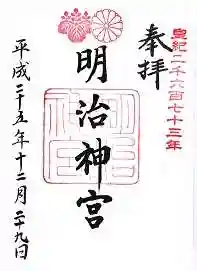 皇紀二千六百七十三年
奉拝
明治神宮
平成二十五年十二月二十九日